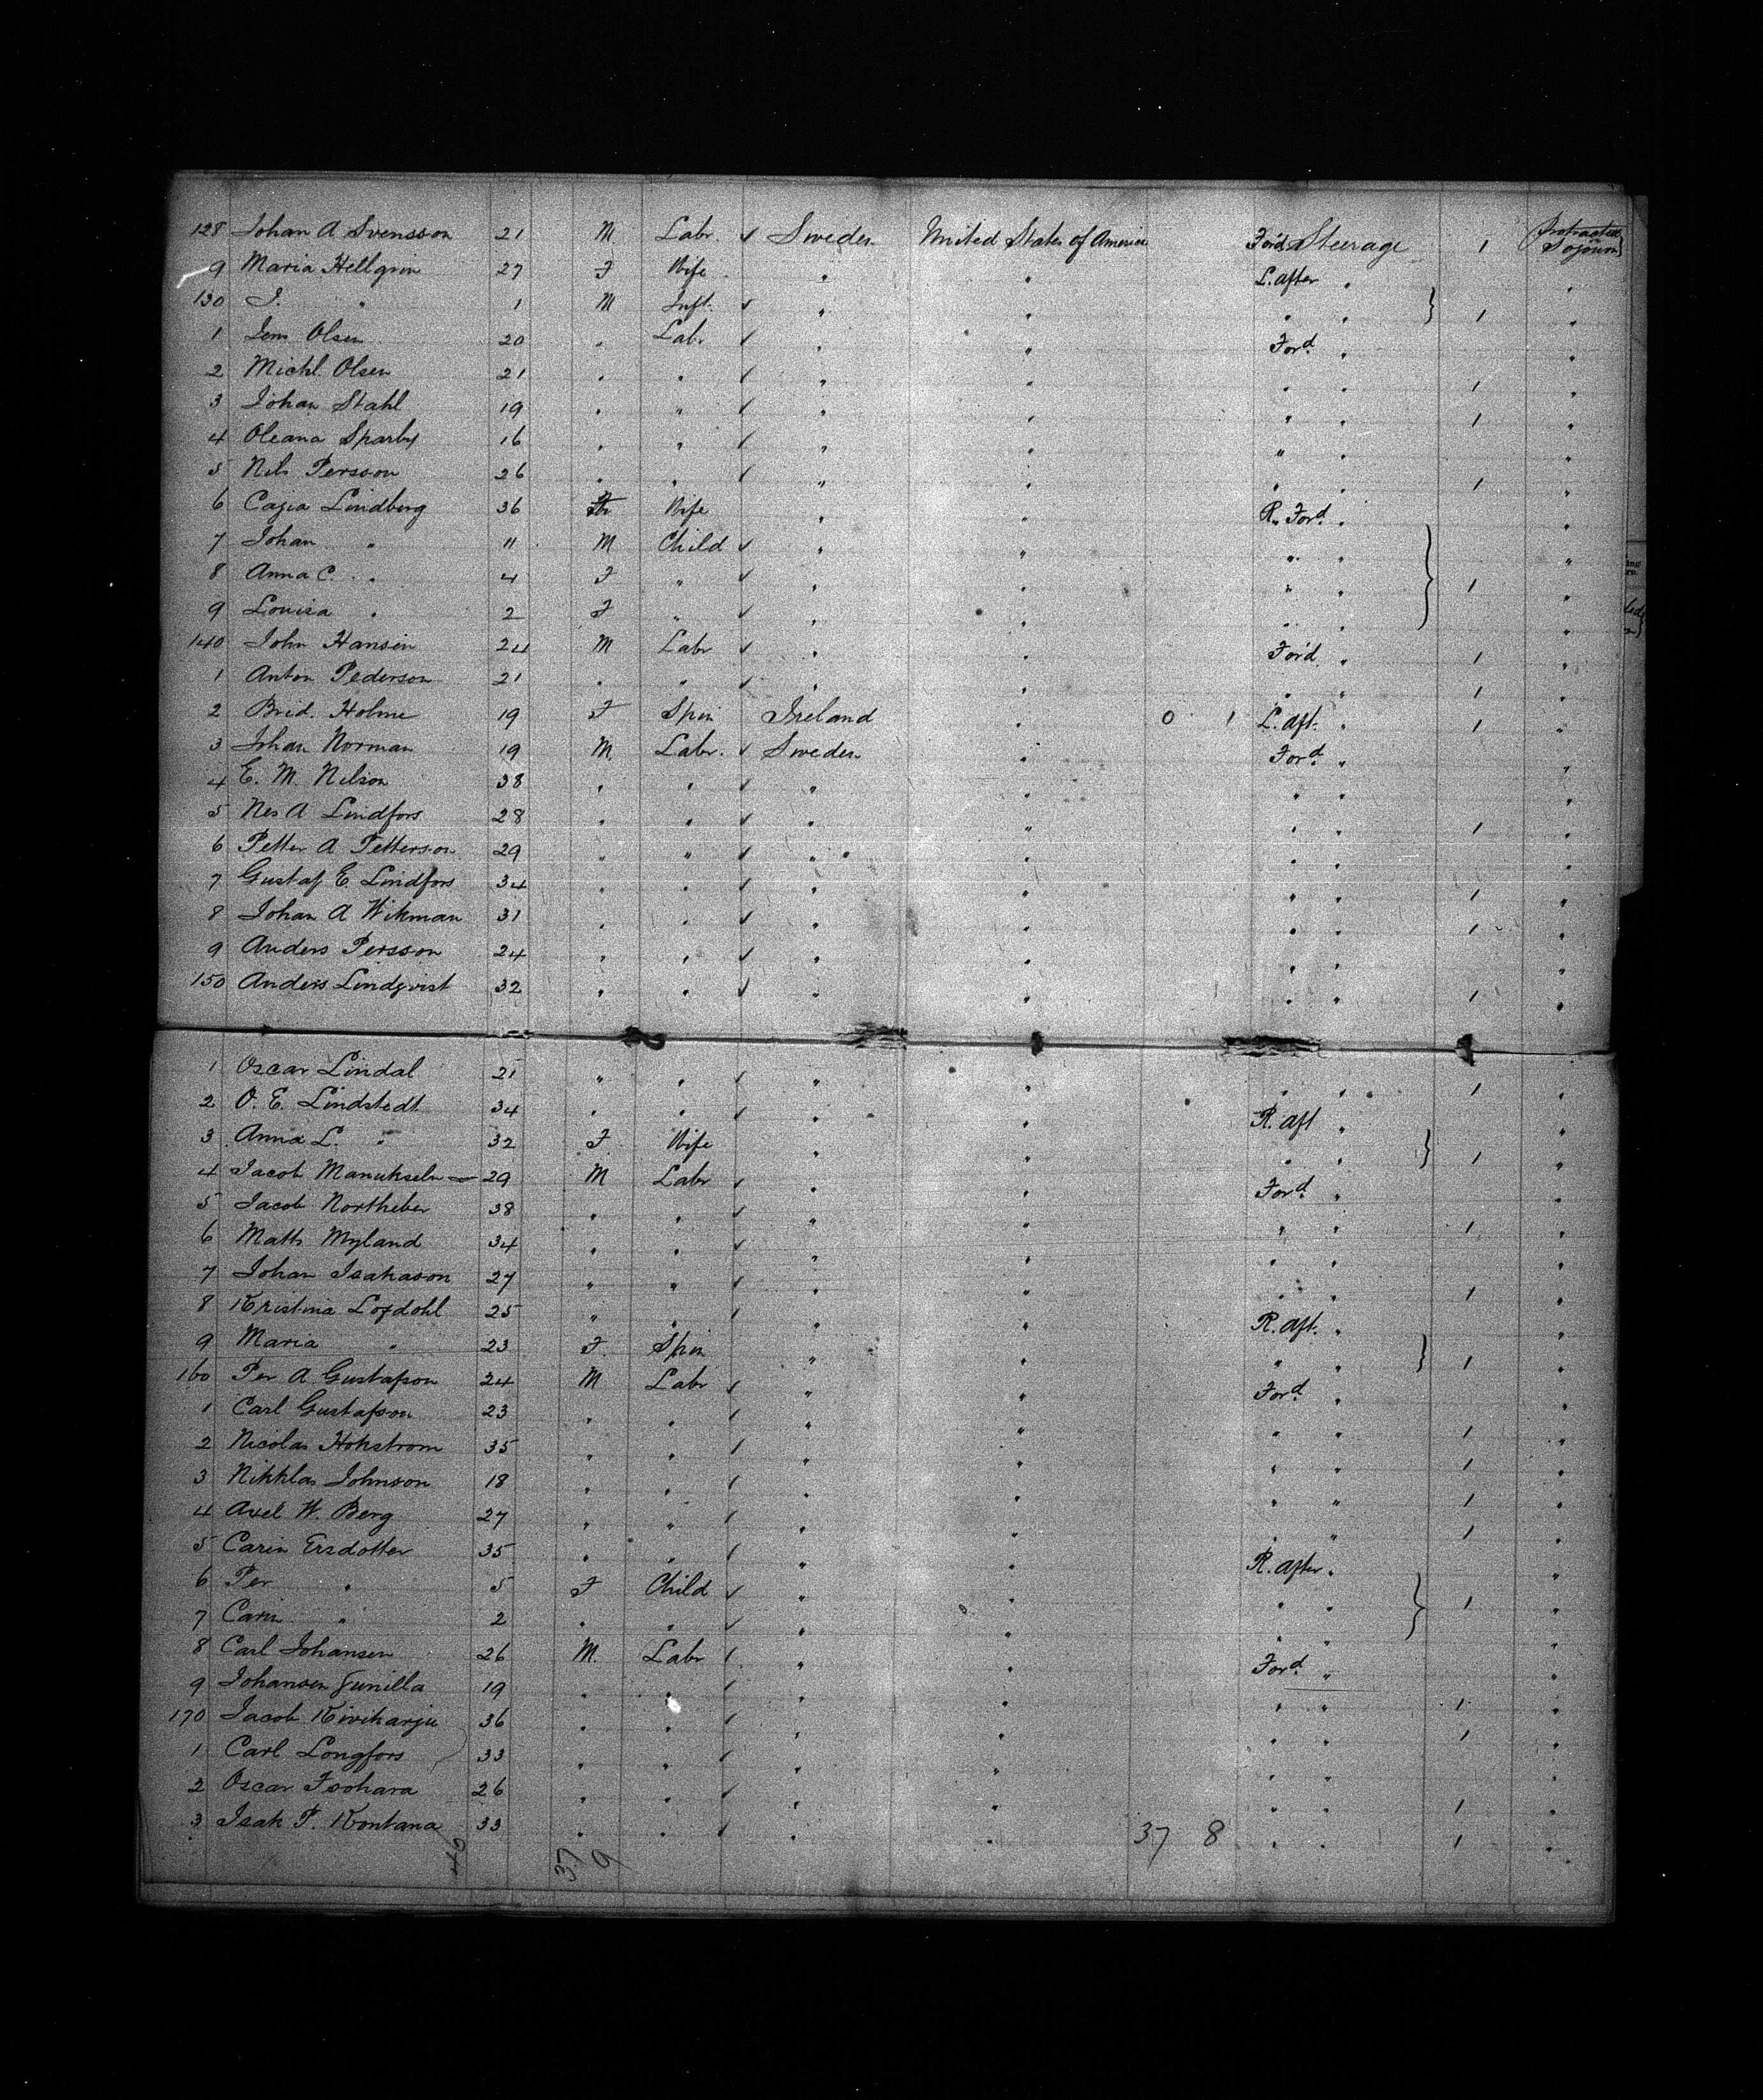 128 Johan A Svensson 21 M Labr. ✓ Sweden United States of America Ford Steerage 1 Protracted Sojourn
9 Maria Hellgrin 27 F Wife " " L. after "  "
130 J. " 1 M Inft. ✓ " " " " } 1 "
1 Jens Olsen 20 " Lab. ✓ " " Ford. " "
2 Michl. Olsen 21 " " ✓ " " " " 1 "
3 Johan Stahl 19 " " ✓ " " " " 1 "
4 Oleana Sparby 16 " " ✓ " " " " "
5 Nils Persson 26 " " ✓ " " " " 1 "
6 Cajsa Lindberg 36 F Wife " " R. Ford. " "
7 Johan " 11 M Child ✓ " " " " "
8 Anna C. " 4 F " ✓ " " " " } 1 "
9 Louisa " 2 F " ✓ " " " " "
140 John Hansen 24 M Labr ✓ " " Ford. " 1 "
1 Anton Pederson 21 " " ✓ " " " " 1 "
2 Brid. Holme 19 F Spin Ireland " 0 1 L. aft. " 1 "
3 Johan Norman 19 M. Labr. ✓ Sweden " Ford. " "
4 E. M. Nilson 38 " " ✓ " " " " "
5 Nes A Lindfors 28 " " ✓ " " " " 1 "
6 Petter A Petterson 29 " " ✓ " " " " "
7 Gustaf E. Lindfors 34 " " ✓ " " " " 1 "
8 Johan A Wikman 31 " " ✓ " " " " 1 "
9 Anders Persson 24 " " ✓ " " " " "
150 Anders Lindqvist 32 " " ✓ " " " " 1 "
1 Oscar Lindal 21 " " ✓ " " " " 1 "
2 O. E. Lindstedt 34 " " ✓ " " R. aft " "
3 Anna L. " 32 F. Wife " " " " } 1 "
4 Jacob 29 M Labr ✓ " " Ford. " "
5 Jacob Northeber 38 " " ✓ " " " " 1 "
6 Matts Myland 34 " " ✓ " " " " "
7 Johan Isakason 27 " " ✓ " " " " 1 "
8 Kristina Lofdohl 25 " " ✓ " " R. aft. " "
9 Maria " 23 F. Spin " " " " } 1 "
160 Per A Gustafson 24 M Labr ✓ " " Ford. " "
1 Carl Gustafson 23 " " ✓ " " " " 1 "
2 Nicolas Hokstrom 35 " " ✓ " " " " 1 "
3 Nikklas Johnson 18 " " ✓ " " " " 1 "
4 Axel W. Berg 27 " " ✓ " " " " 1 "
5 Carin Ersdotter 35 " " ✓ " " R. after " "
6 Per " 5 F Child ✓ " " " " } 1 "
7 Carin " 2 " " ✓ " " " " "
8 Carl Johansen 26 M. Labr ✓ " " Ford. " "
9 Johansen Gunilla 19 " " ✓ " " " " 1 "
170 Jacob Kiviharju 36 " " ✓ " " " " 1 "
1 Carl Longfors 33 " " ✓ " " " " "
2 Oscar 26 " " ✓ " " " " 1 "
3 Isak P. Kontana 33 " " ✓ " " 37 8 " " 1 "
46 37 9